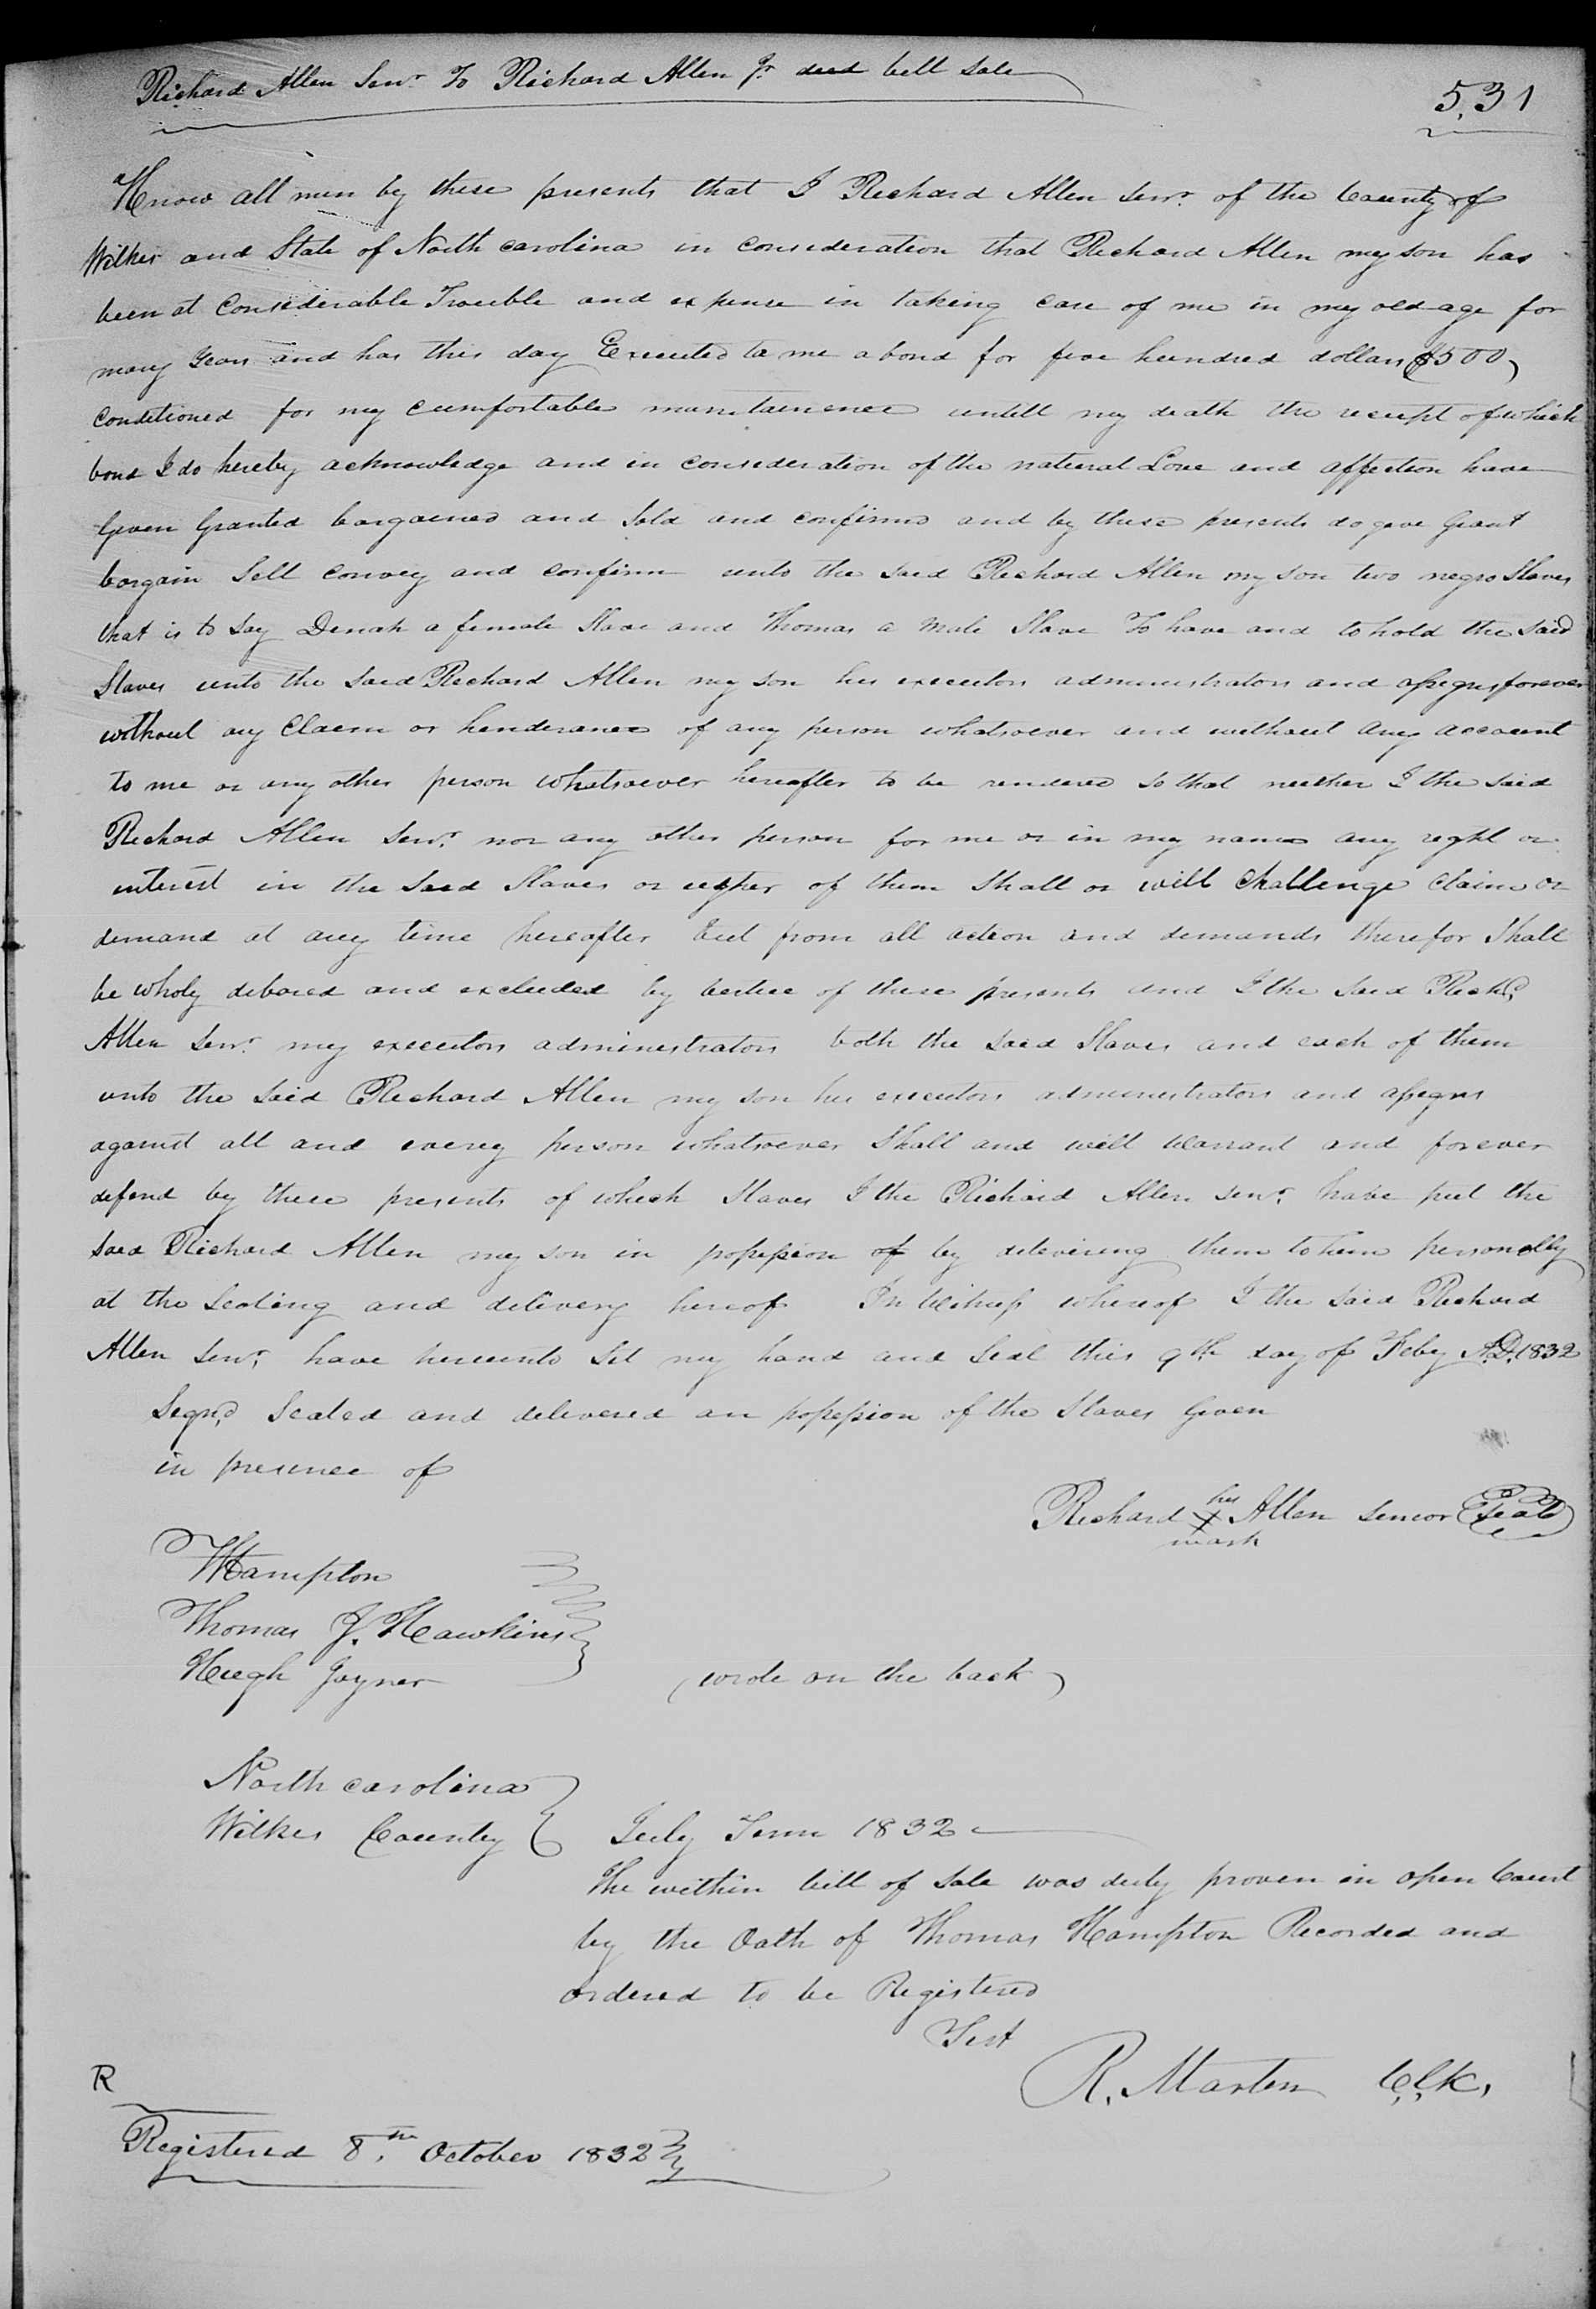 Richard Allen Senr. To Richard Allen Jr. deed bill sale
531
Know all men by these presents that I Richard Allen Senr. of the County of
Wilkes and State of North carolina in consideration that Richard Allen my son has
been at Considerable Trouble and expense in taking care of me in my old age for
many years and has this day Executed to me a bond for five hundred dollars ($500)
Conditioned for my cumfortable maintainence untill my death the receipt of which
bond I do hereby acknowledge and in consideration of the natural Love and affection have
Given Granted bargained and Sold and confirmd and by these presents do give Grant
bargain Sell convey and confirm unto the said Richard Allen my son two negro Slaves
that is to Say Dinah a female Slave and Thomas a Male Slave To have and to hold the said
Slaves unto the said Richard Allen my son his executors administrators and assigns forever
without any Claim or henderance of any person whatsoever and without any account
to me or any other person whatsoever hereafter to be rendered so that neither I the said
Richard Allen Senr. nor any other person for me or in my name any right or
interest in the said Slaves or either of them Shall or will challenge claim or
demand at any time hereafter but from all action and demands therefor Shall
be wholy debared and excluded by vertue of these presents and I the said Richd.
Allen Senr. my executors administrators both the said Slaves and each of them
unto the said Richard Allen my son his executors administrators and assigns
against all and every person whatsoever Shall and will warrant and forever
defend by these presents of which Slaves I the Richard Allen senr. have put the
said Richard Allen my son in possession of by delivering them to him personally
at the Sealing and delivery hereof In Witness whereof I the said Richard
Allen Senr. have hereunto Set my hand and Seal this 9th day of Feby A.D. 1832
Segnd Sealed and delivered an possession of the Slaves Given
in presence of
Richard his X mark Allen Senior (Seal)
Hampton
Thomas J. Hawkins
Hugh Joyner
(wrote on the back)
North carolina
Wilkes County } July Term 1832
The within bill of sale was duly proven in open Court
by the Oath of Thomas Hampton Recorded and
ordered to be Registered
Test
R. Marten Clk.
R
Registered 8th. October 1832